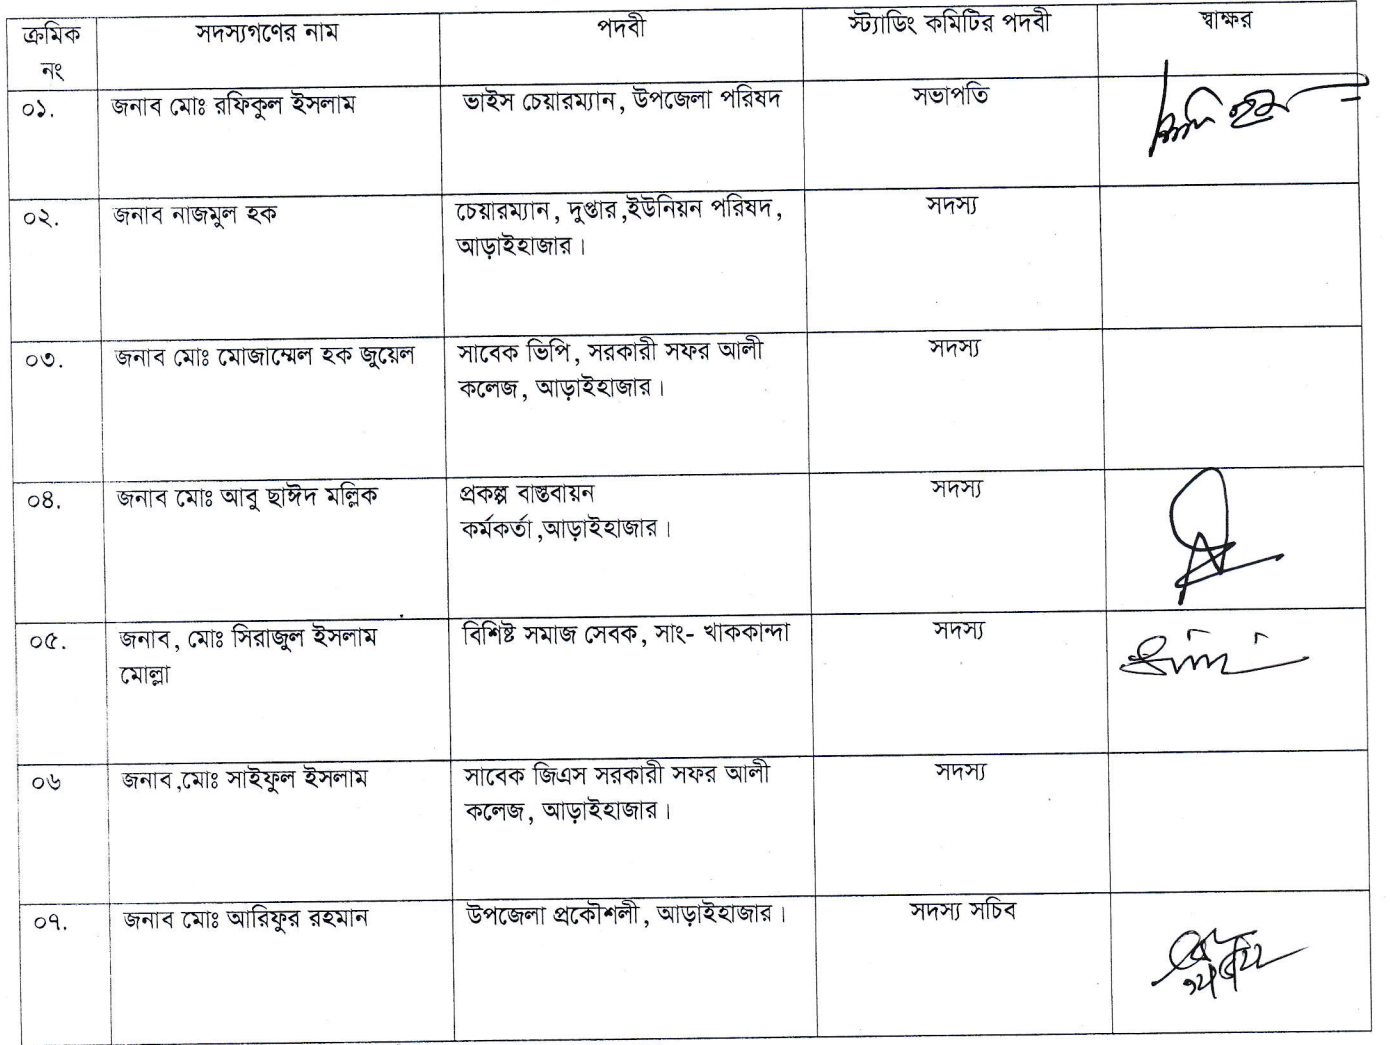 ক্রমিক নং সদস্যগণের নাম পদবী স্ট্যাডিং কমিটির পদবী স্বাক্ষর
০১. জনাব মোঃ রফিকুল ইসলাম ভাইস চেয়ারম্যান, উপজেলা পরিষদ সভাপতি
০২. জনাব নাজমুল হক চেয়ারম্যান, দুপ্তার,ইউনিয়ন পরিষদ, সদস্য
আড়াইহাজার।
০৩. জনাব মোঃ মোজাম্মেল হক জুয়েল সাবেক ভিপি, সরকারী সফর আলী সদস্য
কলেজ, আড়াইহাজার।
০৪. জনাব মোঃ আবু ছাঈদ মল্লিক প্রকল্প বাস্তবায়ন সদস্য
কর্মকর্তা,আড়াইহাজার।
০৫. জনাব, মোঃ সিরাজুল ইসলাম বিশিষ্ট সমাজ সেবক, সাং- খাককান্দা সদস্য
মোল্লা
০৬ জনাব,মোঃ সাইফুল ইসলাম সাবেক জিএস সরকারী সফর আলী সদস্য
কলেজ, আড়াইহাজার।
০৭. জনাব মোঃ আরিফুর রহমান উপজেলা প্রকৌশলী, আড়াইহাজার। সদস্য সচিব